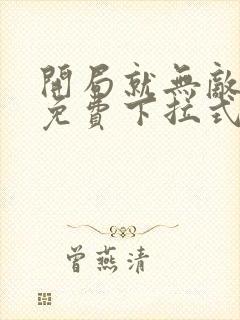 開局就無敵
免費下拉式
曾燕清